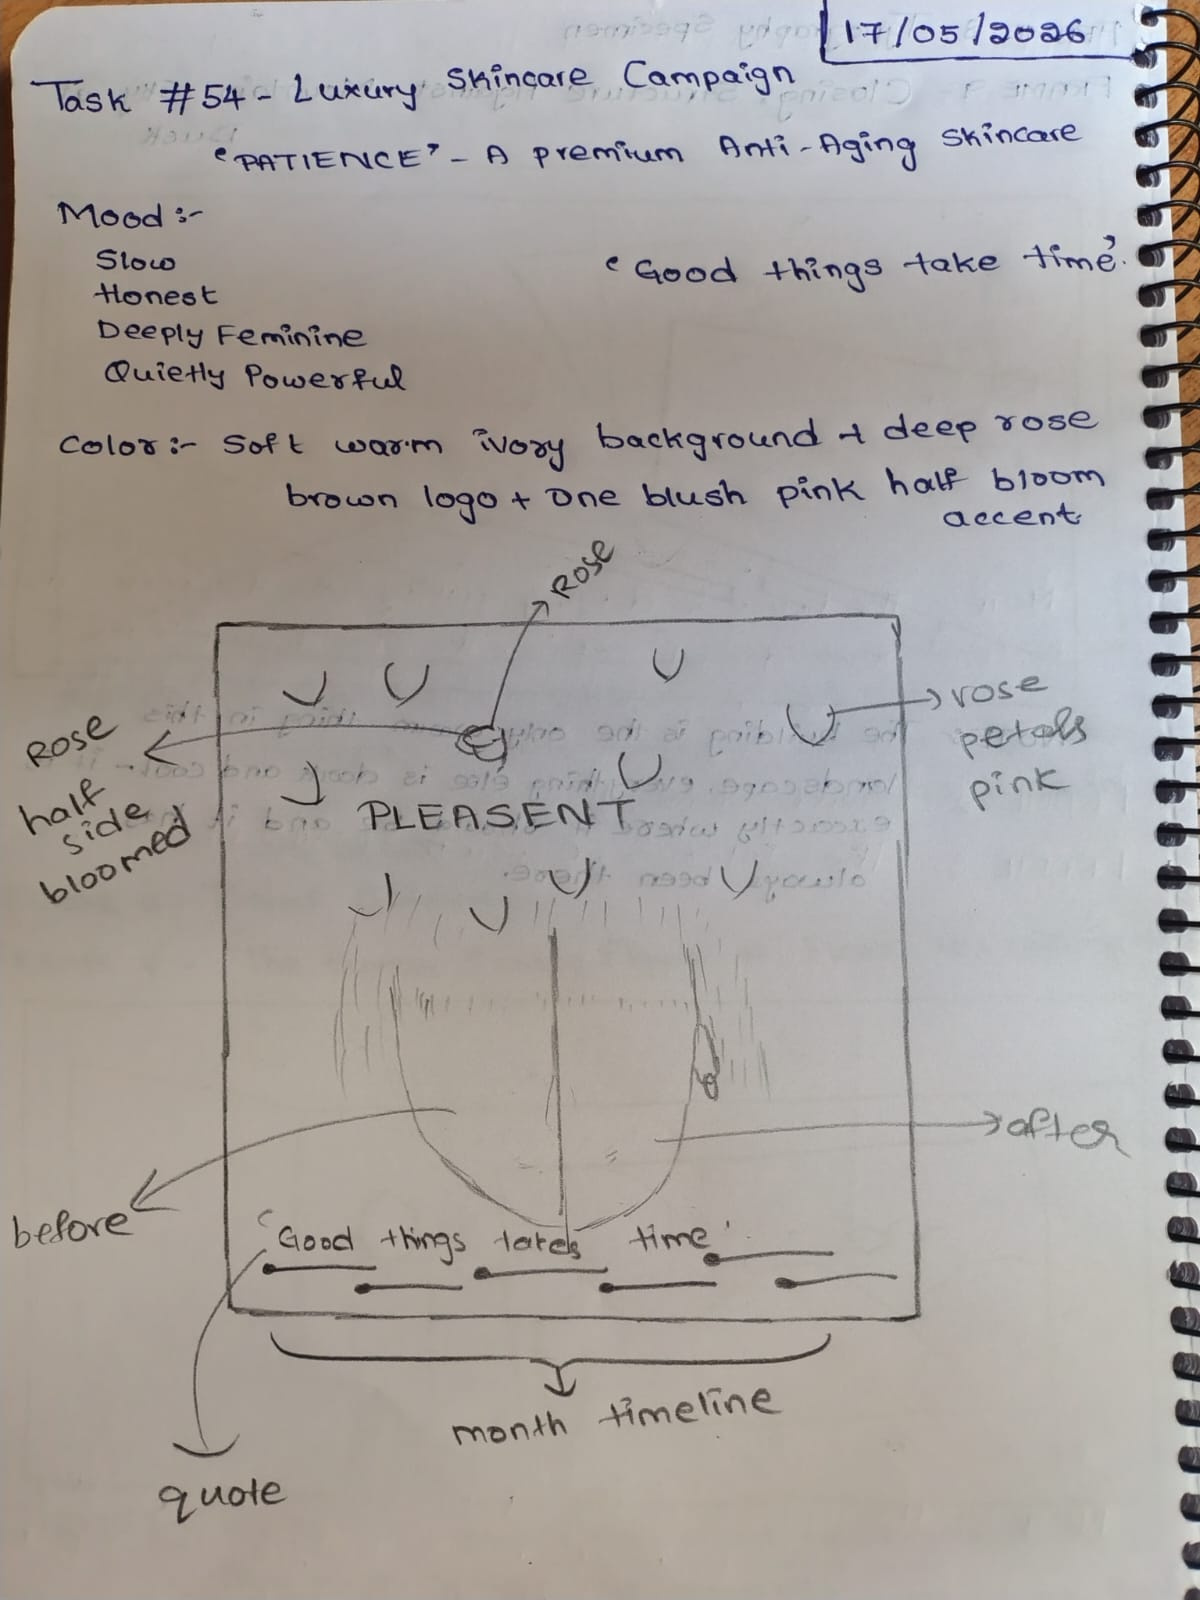 17/05/2026
Task #54 - Luxury Skincare Campaign
'PATIENCE' - A premium Anti-Aging Skincare
Mood :-
Slow
Honest
Deeply Feminine
Quietly Powerful
'Good things take time'.
Color :- Soft warm ivory background + deep rose
brown logo + one blush pink half bloom
accent.
Rose
Rose
half
side
bloomed
rose
petals
pink
PLEASENT
after
before
'Good things takes time'
month timeline
quote